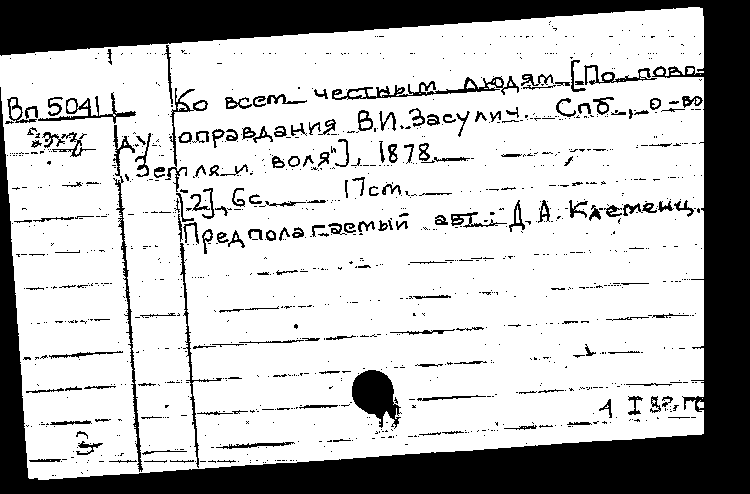 Вп 5041
Ко всем честным людям [По пово-
ду оправдания В.И.Засулич. Спб., о-во
"Земля и воля"], 1878.
[2], 6с. 17см.
Предполагаемый авт.: Д.А. Клеменц.